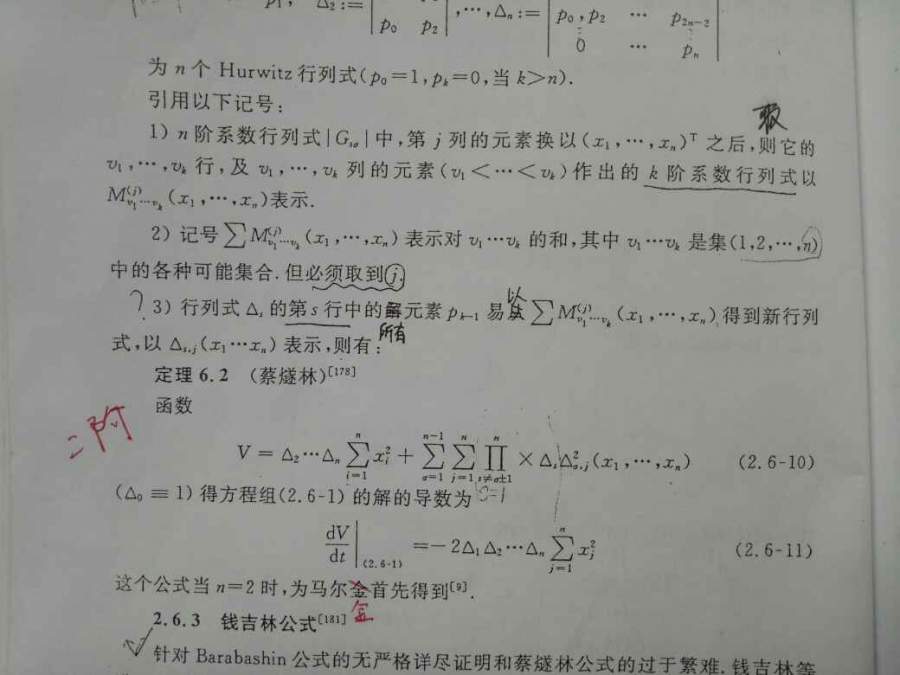 p₁, Δ₂:= | p₀ p₂ | ,⋯,Δₙ:= | p₀,p₂ ⋯ p₂ₙ₋₂
0 ⋯ pₙ |
为 n 个 Hurwitz 行列式(p₀=1,pₖ=0,当 k>n).
引用以下记号:
取
1) n 阶系数行列式|Gₛσ|中,第 j 列的元素换以(x₁,⋯,xₙ)ᵀ 之后,则它的
v₁,⋯,vₖ 行,及 v₁,⋯,vₖ 列的元素(v₁<⋯<vₖ)作出的 k 阶系数行列式以
M^{(j)}_{v₁⋯vₖ}(x₁,⋯,xₙ)表示.
2) 记号∑M^{(j)}_{v₁⋯vₖ}(x₁,⋯,xₙ)表示对 v₁⋯vₖ 的和,其中 v₁⋯vₖ 是集(1,2,⋯,n)
中的各种可能集合.但必须取到 j.
? 3) 行列式 Δₛ 的第 s 行中的解元素 pₖ₋₁ 易 以 ∑M^{(j)}_{v₁⋯vₖ}(x₁,⋯,xₙ),得到新行列
所有
式,以 Δₛ,ⱼ(x₁⋯xₙ)表示,则有:
定理 6.2 (蔡燧林)[178]
函数
二阶
V = Δ₂⋯Δₙ ∑_{i=1}^{n} xᵢ² + ∑_{σ=1}^{n-1} ∑_{j=1}^{n} ∏_{s≠σ±1}^{n} × ΔₛΔ²_{σ,j}(x₁,⋯,xₙ) (2.6-10)
(Δ₀≡1)得方程组(2.6-1)的解的导数为
dV/dt |_{(2.6-1)} = −2Δ₁Δ₂⋯Δₙ ∑_{j=1}^{n} xⱼ² (2.6-11)
这个公式当 n=2 时,为马尔金首先得到[9].
2.6.3 钱吉林公式[181]
针对 Barabashin 公式的无严格详尽证明和蔡燧林公式的过于繁难.钱吉林等